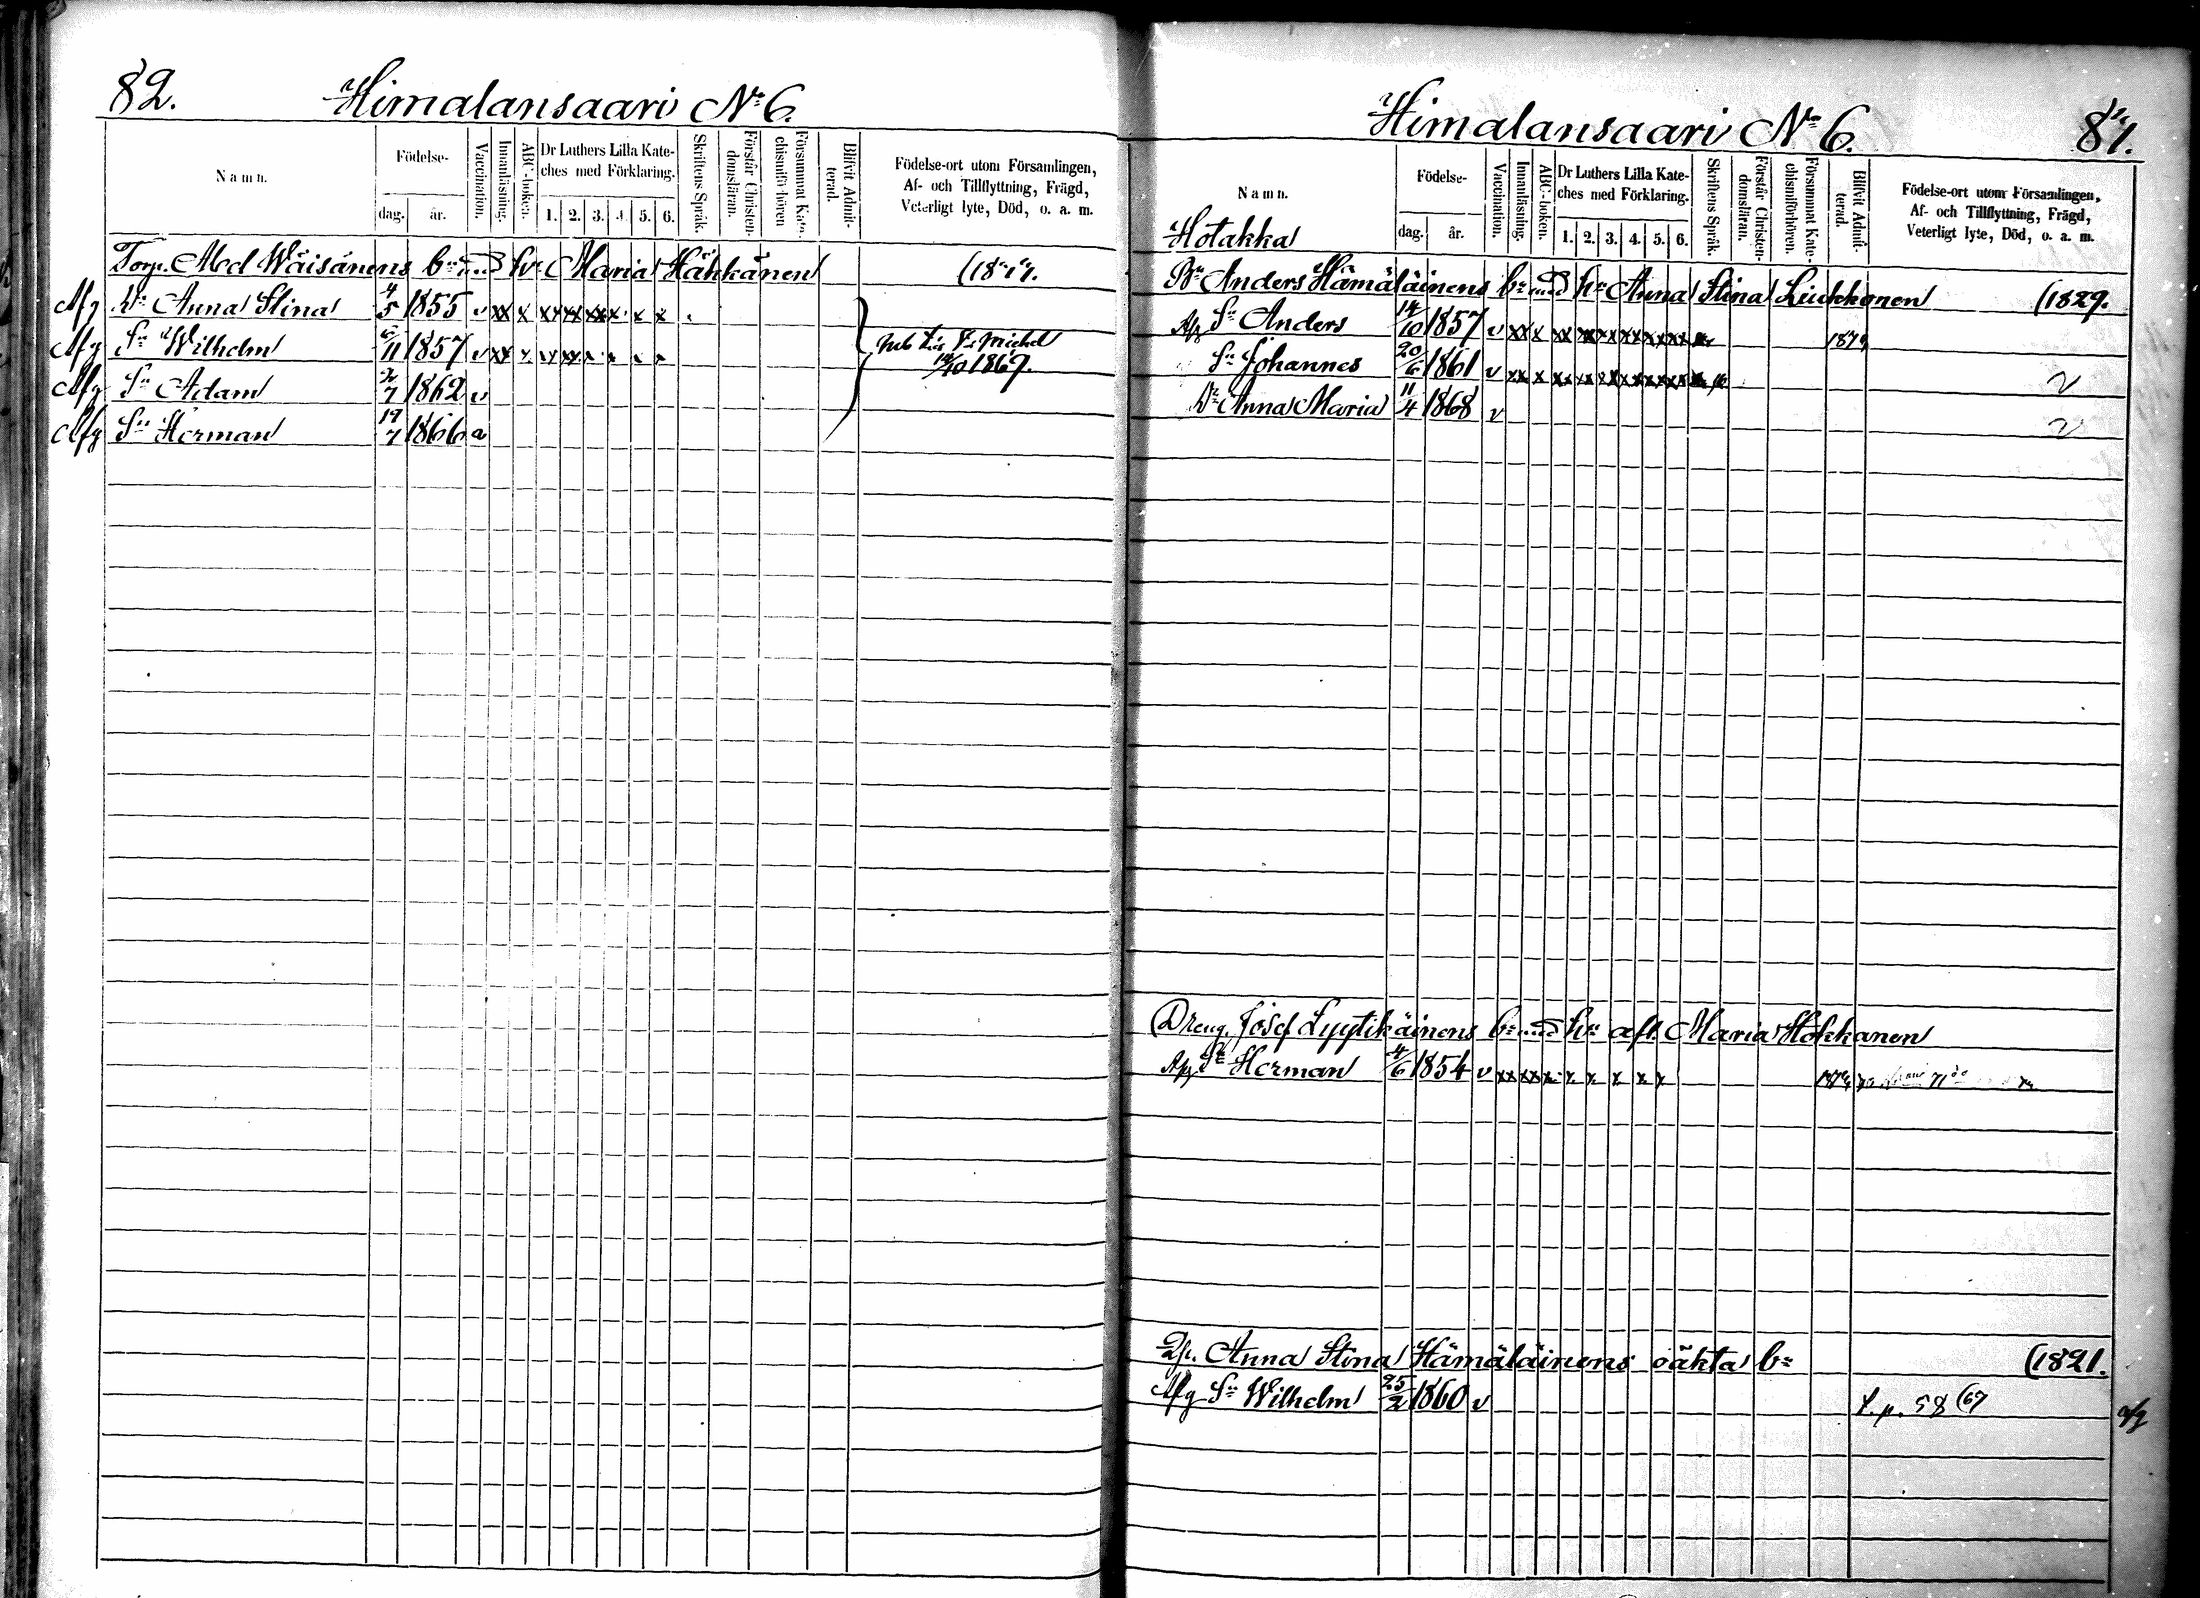 82.
Himalansaari No 6.
Namn.
Födelse-
dag.
år.
Vaccination.
Innanläsning.
ABC-boken.
Dr Luthers Lilla Kate-
ches med Förklaring.
1. 2. 3. 4. 5. 6.
Skriftens Språk.
Förstår Christen-
domsläran.
Försummat Kate-
chismiförhören
Blifvit Admit-
terad.
Födelse-ort utom Församlingen,
Af- och Tillflyttning, Frägd,
Veterligt lyte, Död, o. a. m.
Torp. Wäisänens bn med hu Maria Häkkänen
Afg Dr Anna Stina 4/5 1855 v xx x xx xx xx x x x
Afg Sn Wilhelm 6/11 1857 v xx x
Afg Sn Adam 2/7 1862 v
Afg Sn Herman 19/7 1866
Michel
14/10 1869.
Himalansaari No 6.
81.
Namn.
Födelse-
dag.
år.
Vaccination.
Innanläsning.
ABC-boken.
Dr Luthers Lilla Kate-
ches med Förklaring.
1. 2. 3. 4. 5. 6.
Skriftens Språk.
Förstår Christen-
domsläran.
Försummat Kate-
chismiförhören.
Blifvit Admit-
terad.
Födelse-ort utom Församlingen,
Af- och Tillflyttning, Frägd,
Veterligt lyte, Död, o. a. m.
Hotakka
Bn Anders Hämäläinens bn med hu Anna Stina Liukkonen (1829.
Afg Sn Anders 14/10 1857 v xx x xx xx xx xx xx xx
Sn Johannes 20/6 1861 v xx x xx xx xx xx xx xx v
Dr Anna Maria 11/4 1868 v v
Dreng. Josef Lyytikäinens bn med hu afl. Maria Hokkanen
Afg Sn Herman 4/6 1854 v xx xx x x x x x x
Anna Stina Hämäläinens oäkta bn (1821.
Afg Sn Wilhelm 25/2 1860 v t. p. 58 (67
afg